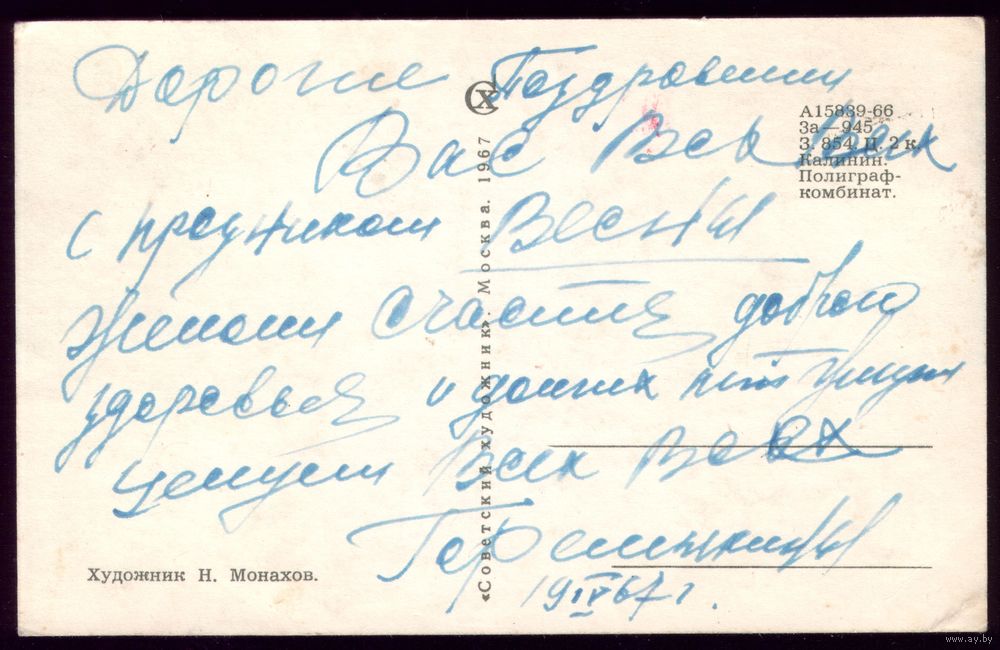 Дорогие Поздравляем
Вас Всех Всех
с праздником Весны
Желаем счастья доброго
здоровья и долгих лет жизни
целуем Всех Всех
19 IV 67 г.
А15839-66
За—945
З. 854. Ц. 2 к.
Калинин.
Полиграф-
комбинат.
«Советский художник». Москва. 1967
Художник Н. Монахов.
www.ay.by